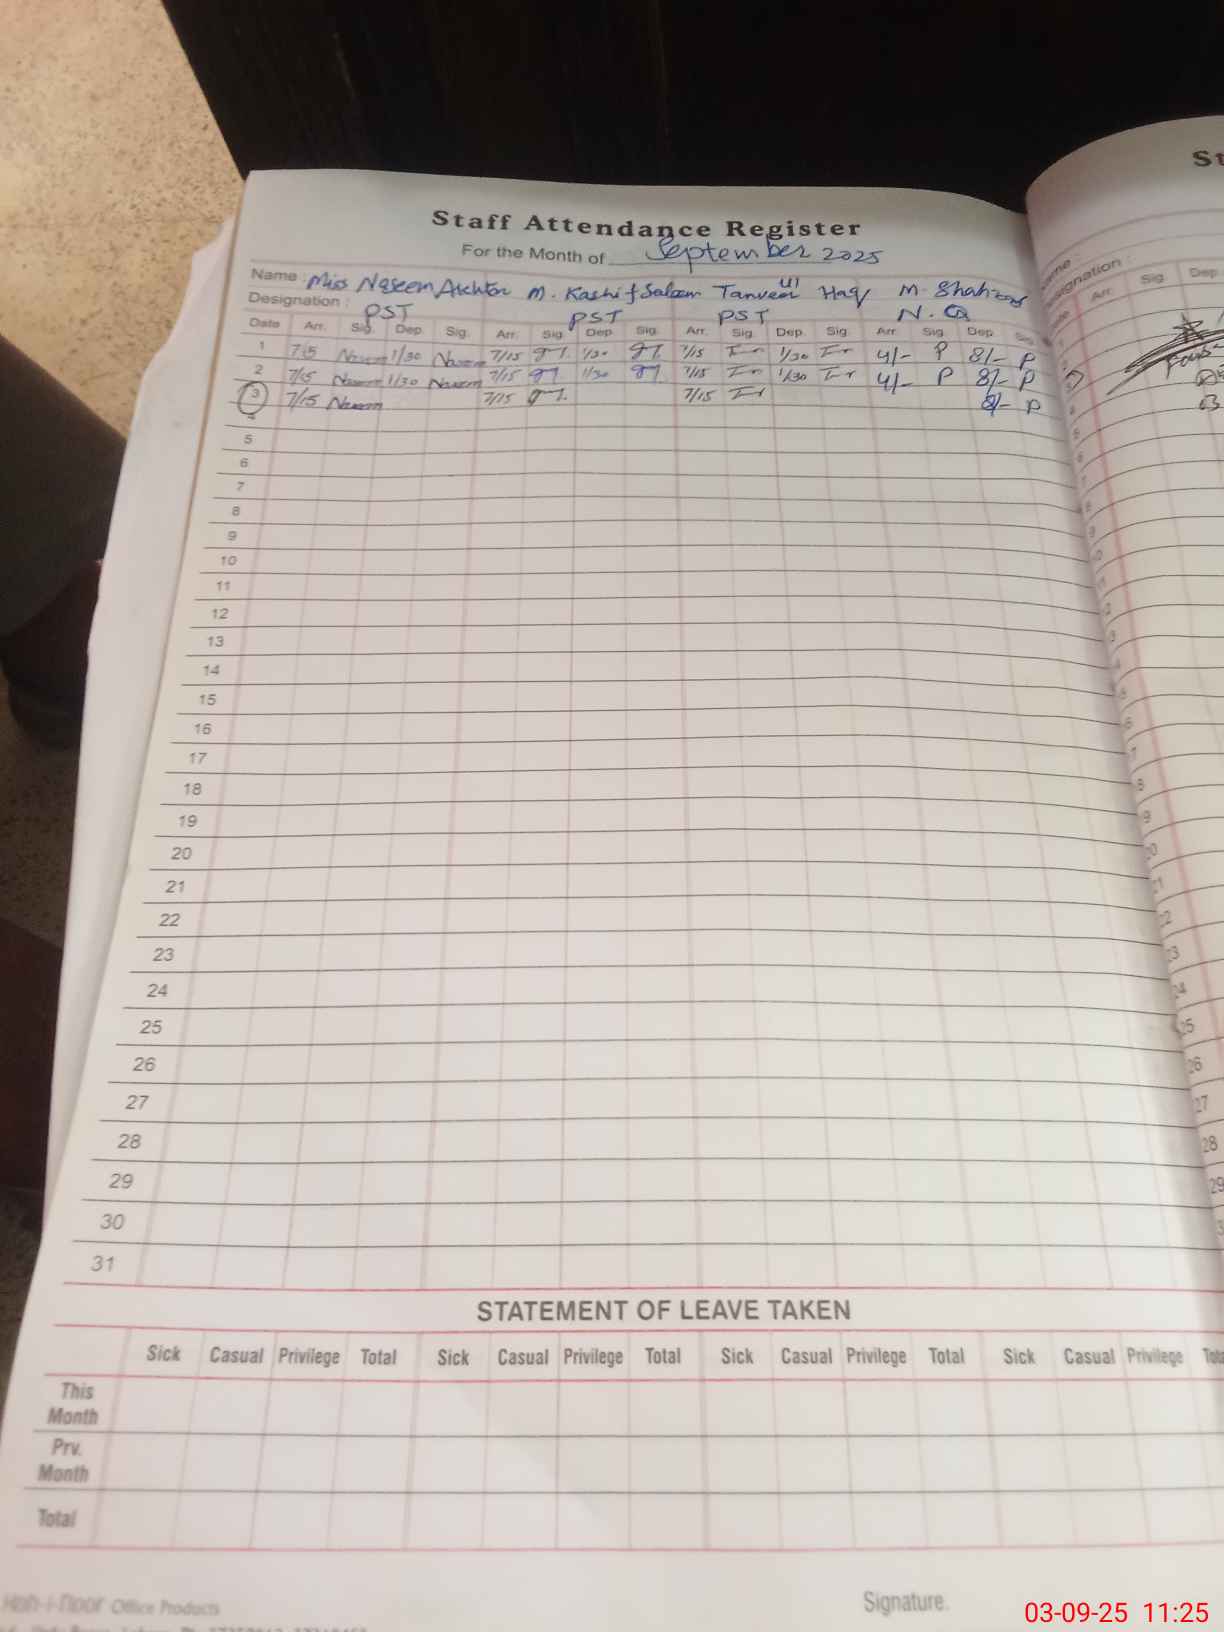 Staff Attendance Register
For the Month of September 2025
Name : Miss Naseem Akhtar M. Kashif Saleem Tanveer ul Haq M. Shahzad
Designation : PST PST PST N.Q
Date Arr. Sig. Dep Sig. Arr. Sig. Dep. Sig. Arr. Sig. Dep. Sig. Arr. Sig. Dep Sig
1 7:15 Naseem 1/30 Naseem 7/15 1/30 7/15 1/30 4/- P 8/- P
2 7/15 Naseem 1/30 Naseem 7/15 1/30 7/15 1/30 4/- P 8/- P
3 7/15 Naseem 7/15 7/15 8/- P
4
5
6
7
8
9
10
11
12
13
14
15
16
17
18
19
20
21
22
23
24
25
26
27
28
29
30
31
STATEMENT OF LEAVE TAKEN
Sick Casual Privilege Total Sick Casual Privilege Total Sick Casual Privilege Total Sick Casual Privilege
This
Month
Prv.
Month
Total
Koh-i-noor Office Products
Signature.
03-09-25 11:25